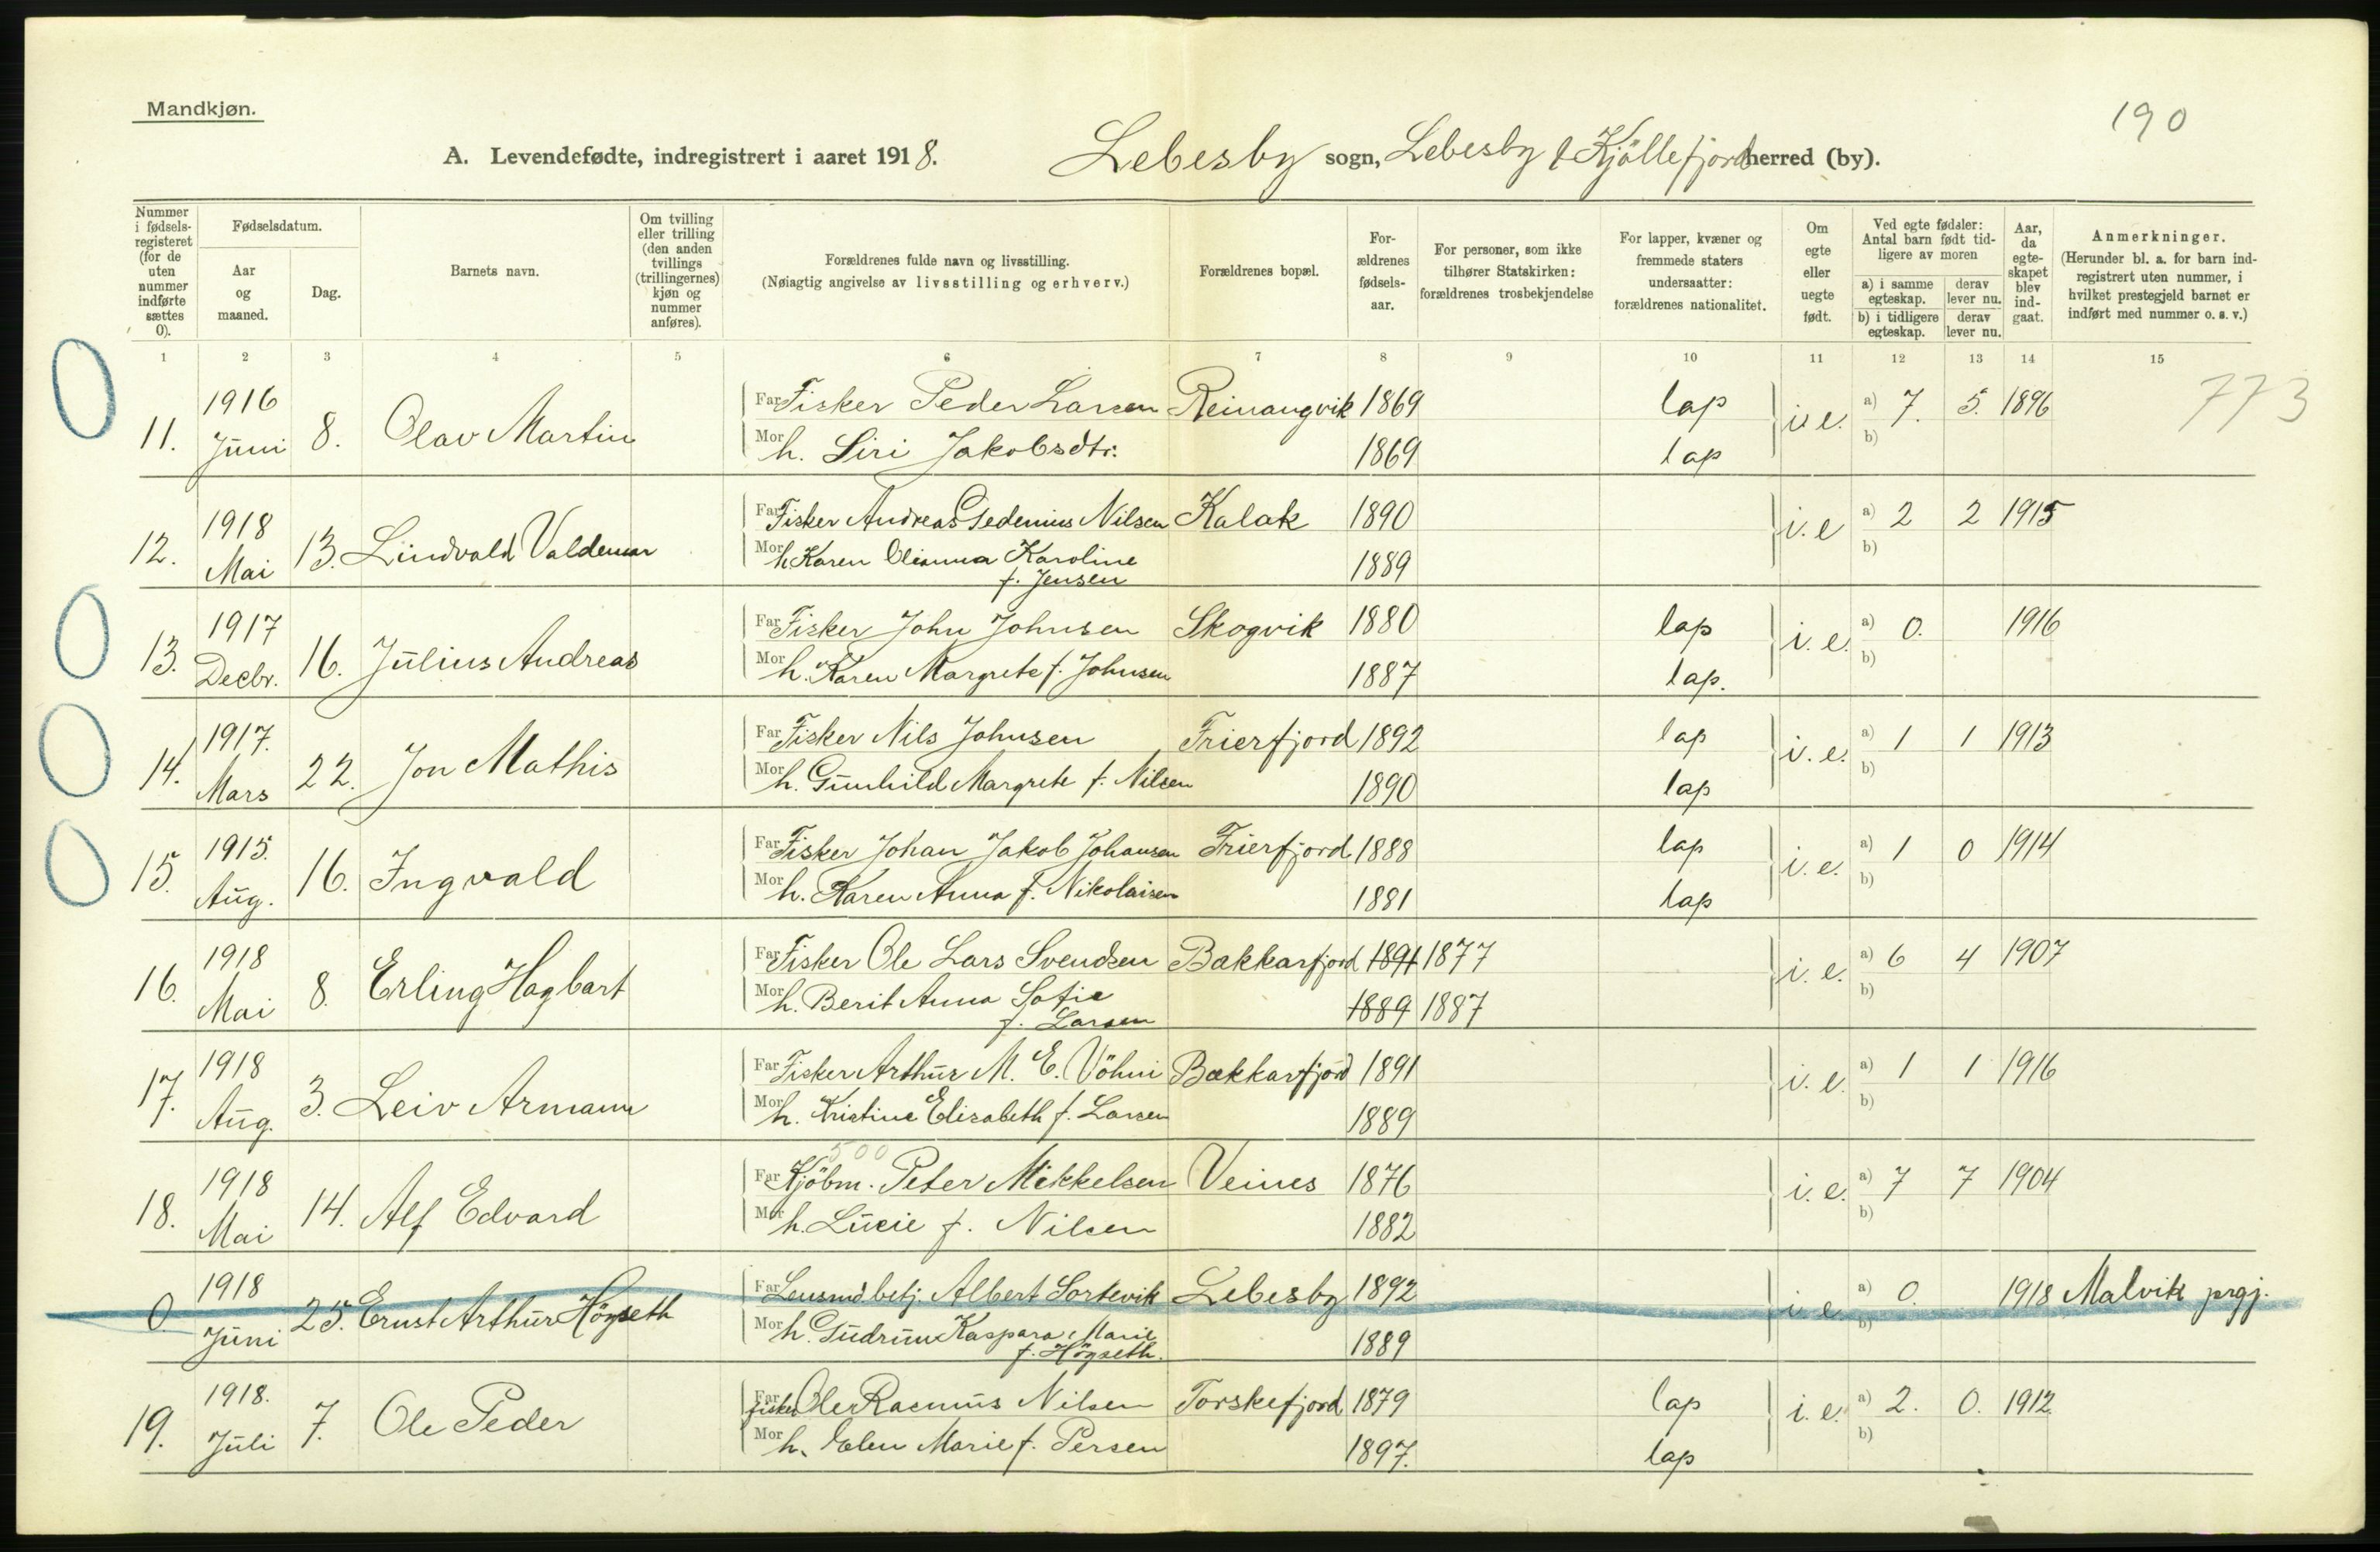 190
Mandkjøn.
A. Levendefødte, indregistrert i aaret 1918. Lebesby sogn, Lebesby & Kjöllefjord herred (by).
Nummer i fødsels-registeret (for de uten nummer indførte sættes 0).
Fødselsdatum.
Aar og maaned.
Dag.
Barnets navn.
Om tvilling eller trilling (den anden tvillings (trillingernes) kjøn og nummer anføres).
Forældrenes fulde navn og livsstilling.
(Nøiagtig angivelse av livsstilling og erhverv.)
Forældrenes bopæl.
For-ældrenes fødsels-aar.
For personer, som ikke tilhører Statskirken: forældrenes trosbekjendelse
For lapper, kvæner og fremmede staters undersaatter: forældrenes nationalitet.
Om egte eller uegte født.
Ved egte fødsler: Antal barn født tid-ligere av moren
a) i samme egteskap. derav lever nu.
b) i tidligere egteskap. derav lever nu.
Aar, da egte-skapet blev ind-gaat.
Anmerkninger.
(Herunder bl. a. for barn ind-registrert uten nummer, i hvilket prestegjeld barnet er indført med nummer o. s. v.)
1 2 3 4 5 6 7 8 9 10 11 12 13 14 15
0 11. 1916 Juni 8. Olav Martin Far Fisker Peder Larsen Reinangvik 1869 lap i. e. a) 7. 5. 1896 773
Mor h. Siri Jakobsdtr. 1869 lap b)
12. 1918 Mai 13. Lindvald Valdemar Far Fisker Andreas Pedenius Nilsen Kalak 1890 i. e a) 2 2 1915
Mor h. Karen Olianna Karoline
f. Jensen 1889 b)
0 13. 1917 Decbr. 16. Julius Andreas Far Fisker John Johnsen Skogvik 1880 lap i. e. a) 0. 1916
Mor h. Karen Margrete f. Johnsen 1887 lap. b)
0 14. 1917. Mars 22. Jon Mathis Far Fisker Nils Johnsen Frierfjord 1892 lap i. e. a) 1 1 1913
Mor h. Gunhild Margrete f. Nilsen 1890 lap b)
0 15. 1915. Aug. 16. Ingvald Far Fisker Johan Jakob Johansen Frierfjord 1888 lap i. e. a) 1 0 1914
Mor h. Karen Anna f. Nikolaisen 1881 lap b)
16. 1918 Mai 8. Erling Hagbart Far Fisker Ole Lars Svendsen Bakkarfjord 1891 1877 i. e. a) 6 4 1907
Mor h. Berit Anna Sofie
f. Larsen 1889 1887 b)
17. 1918 Aug. 3. Leiv Armann Far Fisker Arthur M. E. Vöhni Bekkarfjord 1891 i. e. a) 1 1 1916
Mor h. Kristine Elisabeth f. Larsen 1889 b)
500
18. 1918 Mai 14. Alf Edvard Far Kjöbm. Peter Mikkelsen Veines 1876 i. e. a) 7 7 1904
Mor h. Lucie f. Nilsen 1882 b)
0. 1918 Juni 25. Ernst Arthur Högseth Far Lensmdbetj. Albert Sortevik Lebesby 1892 i. e. a) 0. 1918 Malvik prgj.
Mor h. Gudrun Kaspara Marie
f. Högseth. 1889 b)
19. 1918. Juli 7. Ole Peder Far fisker Ole Rasmus Nilsen Torskefjord 1879 lap i. e. a) 2. 0. 1912.
Mor h. Elen Marie f. Persen 1897. lap b)